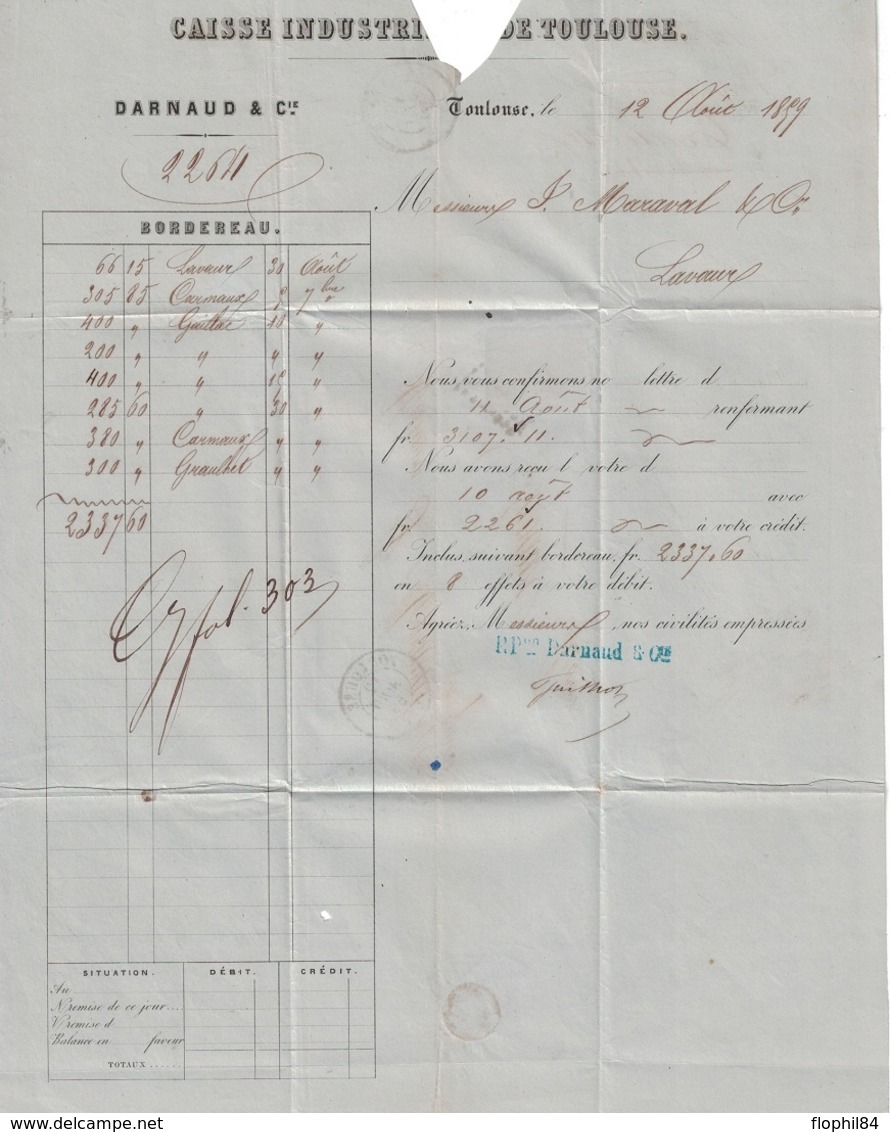 CAISSE INDUSTRI DE TOULOUSE.
DARNAUD & CIE
Toulouse, le 12 Août 1859
2261
Messieurs J. Maraval & Cie
Lavaur
BORDEREAU.
66 15 Lavaur 30 Août
305 85 Carmaux 5 7bre
400 " Gaillac 10 "
200 " " " "
400 " " 15 "
285 60 " 30 "
380 " Carmaux " "
300 " Graulhet " "
2337 60
fol. 303
Nous vous confirmons no lettre d
11 Août renfermant
fr. 3107. 11.
Nous avons reçu l votre d
10 août avec
fr. 2261. à votre crédit.
Inclus, suivant bordereau, fr. 2337,60
en 8 effets à votre débit.
Agréez, Messieurs, nos civilités empressées
P.Pon Darnaud & Cie
TOULOUSE
SITUATION. DÉBIT. CRÉDIT.
Au
N/remise de ce jour....
V/remise d
Balance en faveur
TOTAUX ......
flophil84